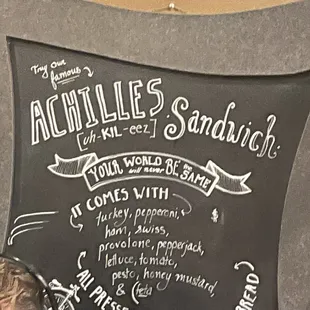 Try our
famous
ACHILLES Sandwich.
[uh-KIL-eez]
YOUR WORLD will never BE the SAME
IT COMES WITH
turkey, pepperoni,
ham, swiss,
provolone, pepperjack,
lettuce, tomato,
pesto, honey mustard,
& feta
ALL PRESSE
BREAD